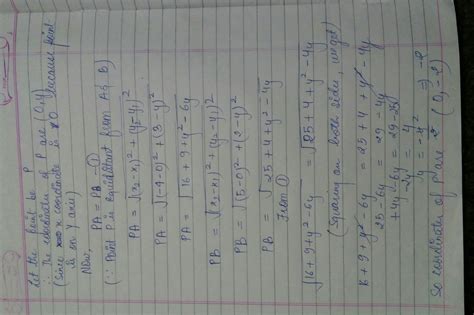 Let the point be P
∴ The coordinates of P are (0,y)
(Since x coordinate is 0 because point
is on Y axis)
Now,
PA = PB — ①
(∵ Point P is equidistant from A & B)
PA = √(x₂-x₁)² + (y₂-y₁)²
PA = √(-4-0)² + (3-y)²
PA = √16+9+y²-6y
PB = √(x₂-x₁)² + (y₂-y₁)²
PB = √(5-0)² + (2-y)²
PB = √25+4+y²-4y
From ①
√16+9+y²-6y = √25+4+y²-4y
(Squaring on both sides, we get)
16+9+y²-6y = 25+4+y²-4y
25-6y = 29-4y
+4y-6y = 29-25
-2y = 4
y = -4/2 ⇒ -2
So coordinates of P are (0,-2)